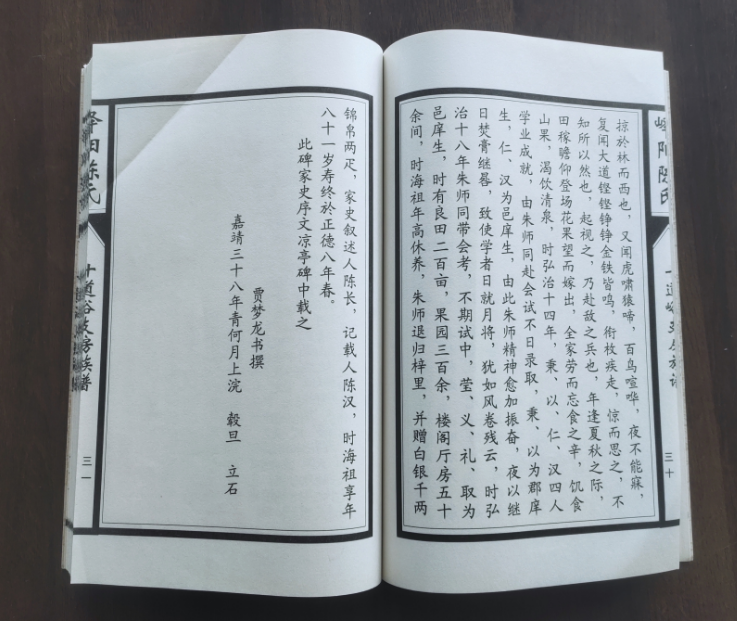 峄阳陈氏
三十
掠於林而西也，又闻虎啸猿啼，百鸟喧哗，夜不能寐，
复闻大道铿铿铮铮金铁皆鸣，衔枚疾走，惊而思之，不
知所以然也，起视之，乃赴敌之兵也，年逢夏秋之际，
田稼瞻仰登场花果望而嫁出，全家劳而忘食之辛，饥食
山果，渴饮清泉，时弘治十四年，秉、以、仁、汉四人
学业成就，由朱师同赴会试不日录取，秉、以为郡庠
生，仁、汉为邑庠生，由此朱师精神愈加振奋，夜以继
日焚膏继晷，致使学者日就月将，犹如风卷残云，时弘
治十八年朱师同带会考，不期试中，莹、义、礼、取为
邑庠生，时有良田二百亩，果园三百余，楼阁厅房五十
余间，时海祖年高休养，朱师退归梓里，并赠白银千两
锦帛两疋，家史叙述人陈长，记载人陈汉，时海祖享年
八十一岁寿终於正德八年春。
此碑家史序文凉亭碑中载之
贾梦龙书撰
嘉靖三十八年青何月上浣 毂旦 立石
峄阳陈氏
十道谷支房族谱
三一